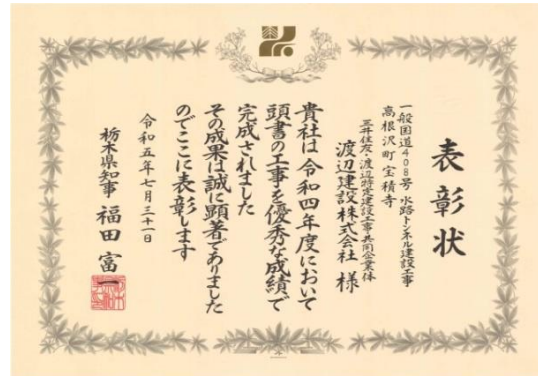 表彰状
一般国道408号 水路トンネル建設工事
高根沢町 宝積寺
三井住友・渡辺特定建設工事共同企業体
渡辺建設株式会社 様
貴社は令和四年度において
頭書の工事を優秀な成績で
完成されました
その成果は誠に顕著でありました
のでここに表彰します
令和五年七月三十一日
栃木県知事 福田富一